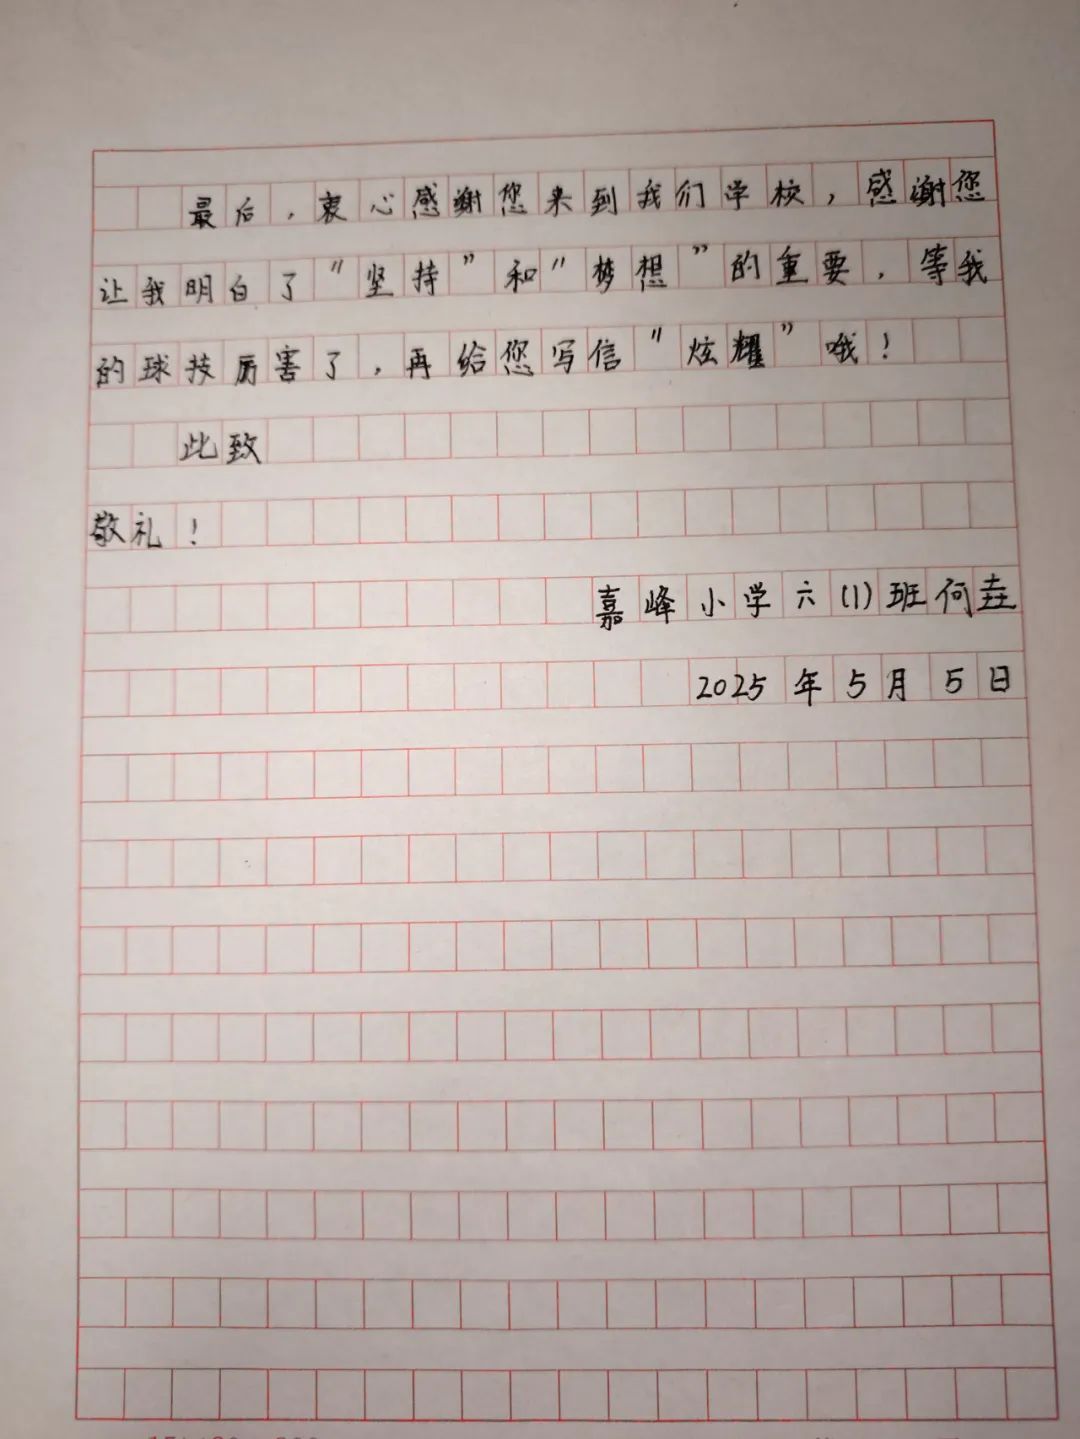 最后，衷心感谢您来到我们学校，感谢您
让我明白了“坚持”和“梦想”的重要，等我
的球技厉害了，再给您写信“炫耀”哦！
此致
敬礼！
嘉峰小学六(1)班何垚
2025年5月5日